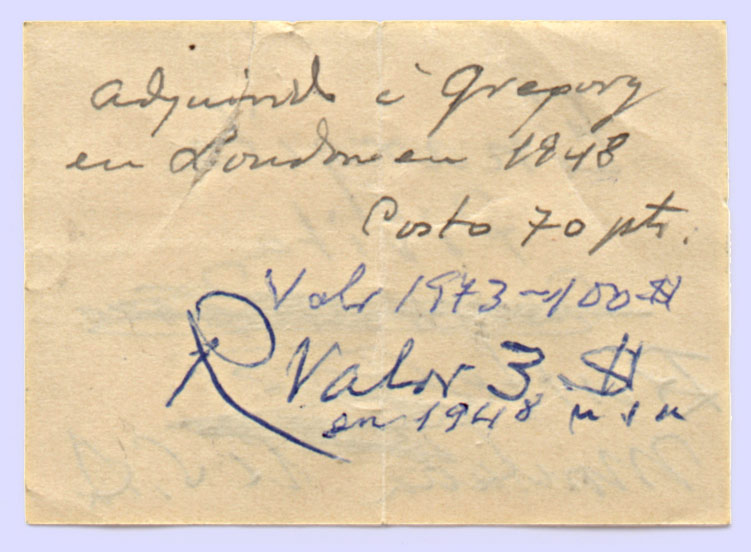 adquirido à Gregory
en London en 1948
Costo 70 pts.
Valor 1973 ~ 100 $
R Valor 3 $
en 1948